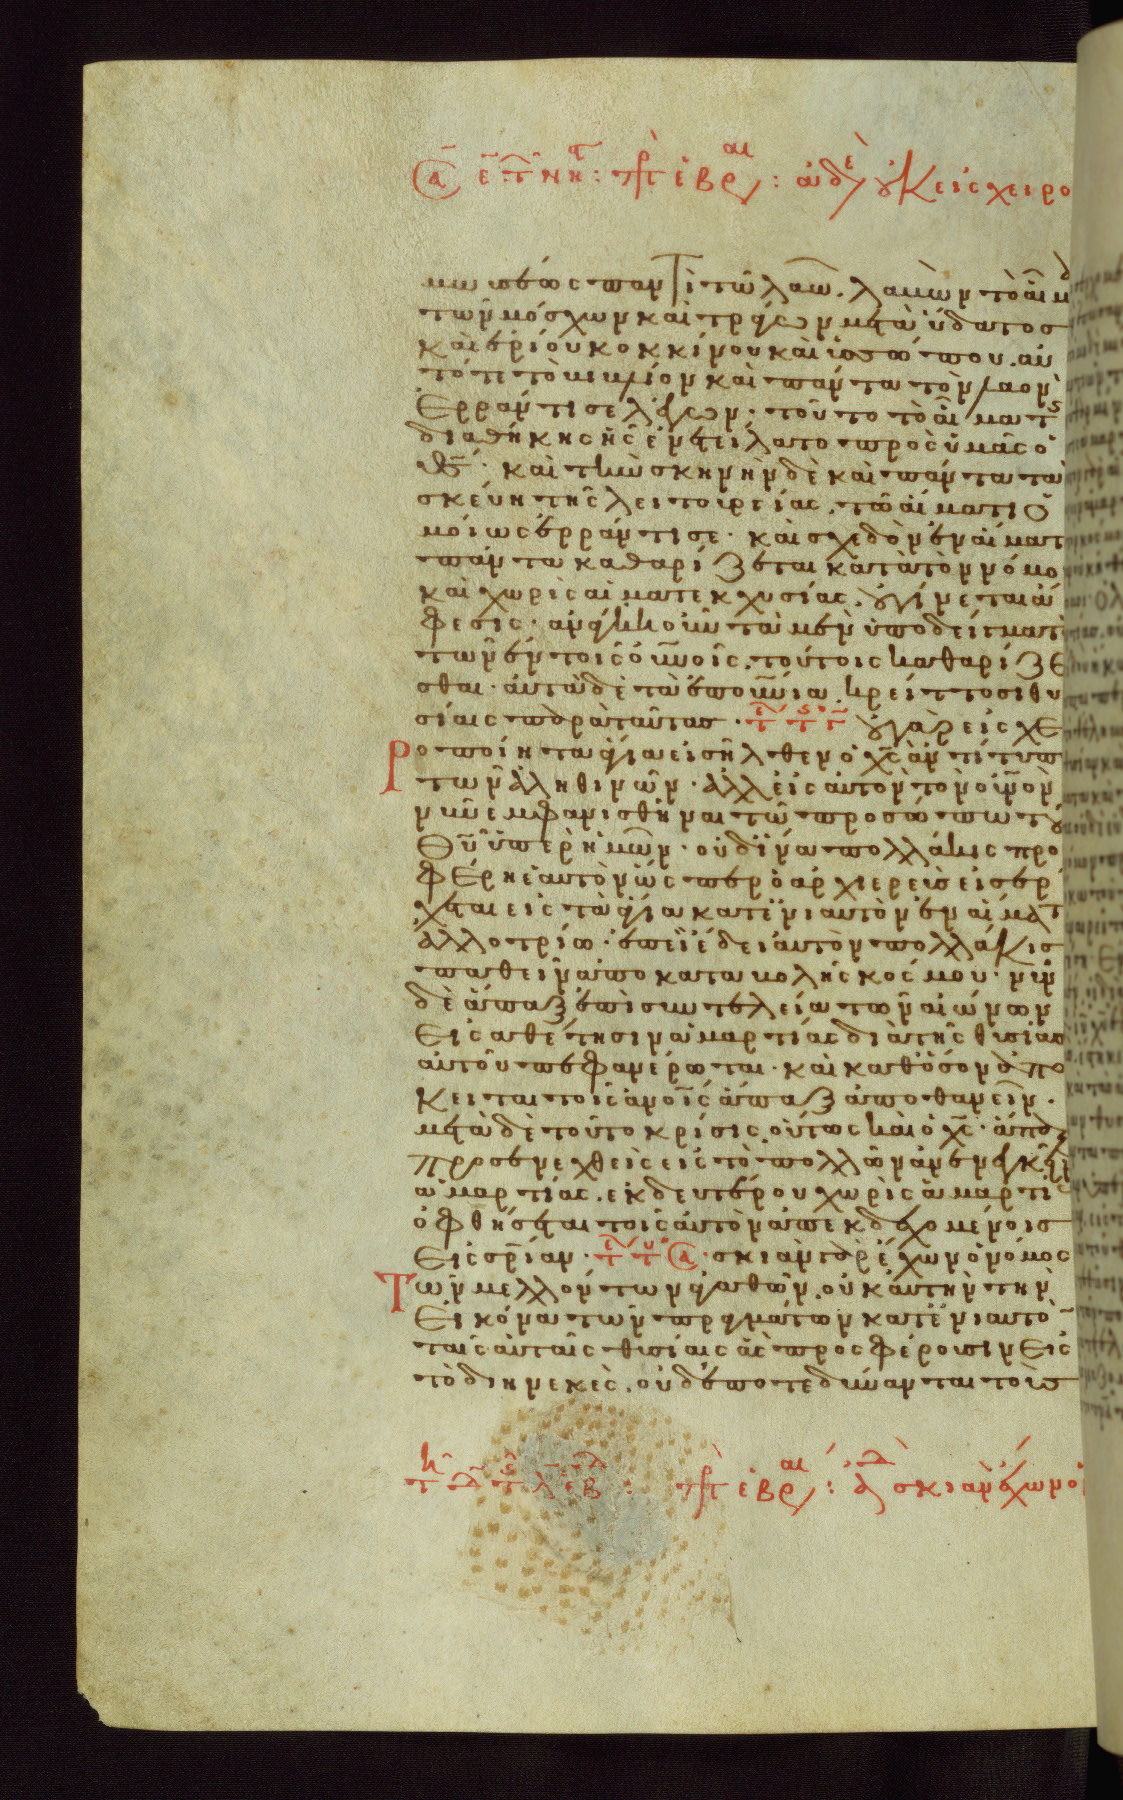 μωϋσέως παντὶ τῶ λαῶ. λαβὼν τὸ αἷμα
τῶν μόσχων καὶ τράγων μετὰ ὕδατος
καὶ ἐρίου κοκκίνου καὶ ὑσσώπου. αὐ
τό τε τὸ βιβλίον καὶ πάντα τὸν λαὸν
ἐρράντισε λέγων· τοῦτο τὸ αἷμα τῆς
διαθήκης ἧς ἐνετείλατο πρὸς ὑμᾶς ὁ
θς· καὶ τὴν σκηνὴν δὲ καὶ πάντα τὰ
σκεύη τῆς λειτουργίας. τῶ αἵματι ὁ
μοίως ἐρράντισε· καὶ σχεδὸν ἐν αἵματι
πάντα καθαρίζεται κατὰ τὸν νόμον
καὶ χωρὶς αἱματεκχυσίας. οὐ γίνεται ἄ
φεσις· ἀνάγκη οὖν τὰ μὲν ὑποδείγματα
τῶν ἐν τοῖς οὐνοῖς. τούτοις καθαρίζε
σθαι· αὐτὰ δὲ τὰ ἐπουνια κρείττοσι θυ
σίαις παρὰ ταύτας· οὐ γὰρ εἰς χε
ροποίητα ἅγια εἰσῆλθεν ὁ χς ἀντίτυπα
τῶν ἀληθινῶν· ἀλλ εἰς αὐτὸν τὸν οὐνον
νῦν ἐμφανισθῆναι τῶ προσώπω τοῦ
θυ ὑπὲρ ἡμῶν· οὐδ ἵνα πολλάκις προ
φέρη ἑαυτὸν ὥσπερ ὁ ἀρχιερεὺς εἰσέρ
χεται εἰς τὰ ἅγια κατ ἐνιαυτὸν ἐν αἵματι
ἀλλοτρίω· ἐπεὶ ἔδει αὐτὸν πολλάκις
παθεῖν ἀπὸ καταβολῆς κόσμου· νῦν
δὲ ἅπαξ ἐπὶ συντελεία τῶν αἰώνων
εἰς ἀθέτησιν ἁμαρτίας διὰ τῆς θυσίας
αὐτοῦ πεφανέρωται· καὶ καθ ὅσον ἀπό
κειται τοῖς ἀνοις ἅπαξ ἀποθανεῖν·
μετὰ δὲ τοῦτο κρίσις. οὕτως καὶ ὁ χς· ἅπαξ
προσενεχθεὶς εἰς τὸ πολλῶν ἀνενεγκεῖν
ἁμαρτίας. ἐκ δευτέρου χωρὶς ἁμαρτί
ὀφθήσεται τοῖς αὐτὸν ἀπεκδεχομένοις
εἰς σριαν· σκιὰν γὰρ ἔχων ὁ νόμος
τῶν μελλόντων ἀγαθῶν. οὐκ αὐτὴν τὴν
εἰκόνα τῶν πραγμάτων κατ ἐνιαυτὸ
ταῖς αὐταῖς θυσίαις ἃς προσφέρουσιν εἰς
τὸ διηνεκὲς. οὐδέποτε δύνανται τοὺς